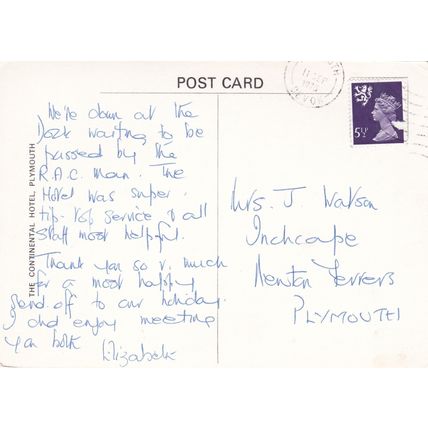 POST CARD
THE CONTINENTAL HOTEL, PLYMOUTH
We're down at the
Dock waiting to be
passed by the
R.A.C. Man. The
Hotel was super.
tip-top service & all
staff most helpful.
Thank you so v. much
for a most happy
send off to our holiday.
I did enjoy meeting
you both
Elizabeth
5½P
Mrs. J. Watson
Inchcape
Newton Ferrers
PLYMOUTH